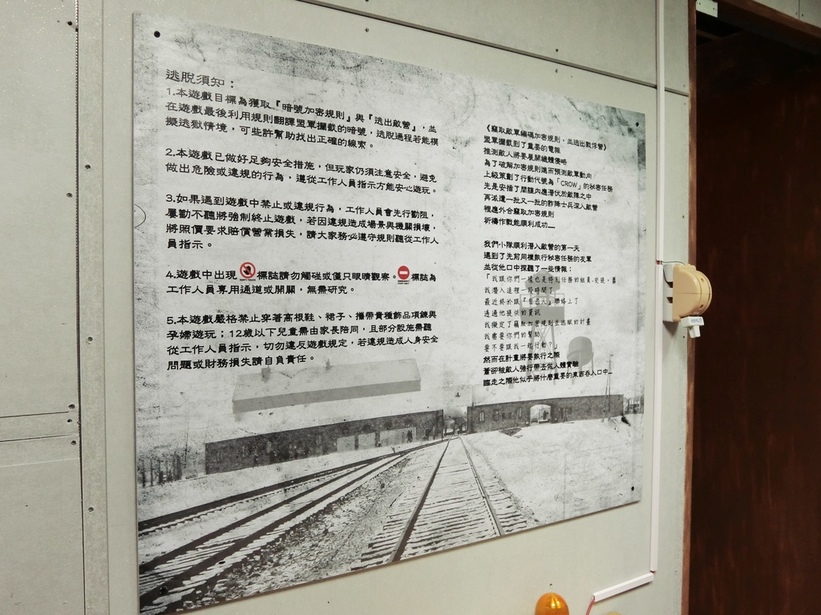 逃脫須知：
1.本遊戲目標為獲取『暗號加密規則』與『逃出敵營』，並
在遊戲最後利用規則翻譯盟軍攔截的暗號，逃脫過程若能模
擬逃獄情境，可些許幫助找出正確的線索。
2.本遊戲已做好足夠安全措施，但玩家仍須注意安全，避免
做出危險或違規的行為，遵從工作人員指示方能安心遊玩。
3.如果遇到遊戲中禁止或違規行為，工作人員會先行勸阻，
屢勸不聽將強制終止遊戲，若因違規造成場景與機關損壞，
將照價要求賠償營業損失，請大家務必遵守規則聽從工作人
員指示。
4.遊戲中出現 標誌請勿觸碰或僅只眼睛觀察。 標誌為
工作人員專用通道或開關，無需研究。
5.本遊戲嚴格禁止穿著高根鞋、裙子、攜帶貴種飾品項鍊與
孕婦遊玩；12歲以下兒童需由家長陪同，且部分設施需聽
從工作人員指示，切勿違反遊戲規定，若違規造成人身安全
問題或財務損失請自負責任。
《竊取敵軍編碼加密規則，並逃出戰俘營》
盟軍攔截到了重要的電報
推測敵人將要展開細體侵略
為了破解加密規則進而預測敵軍動向
上級策劃了行動代號為「CROW」的秘密任務
先是安插了間諜內應潛伏於敵陣之中
再派遣一批又一批的敢降士兵深入敵營
裡應外合竊取加密規則
祈禱作戰能順利成功……
我們小隊順利潛入敵營的第一天
遇到了先前同樣執行秘密任務的友軍
並從他口中探聽了一些情報：
最近終於跟「藍色人」聯絡上了
透過他提供的資訊
我擬定了竊取加密規則並逃獄的計畫
我需要你們的幫助
要不要跟我一起行動？」
然而在計畫將要執行之際
蒼卻被敵人強行帶去做人體實驗
臨走之際他似乎將什麼重要的東西吞入口中…